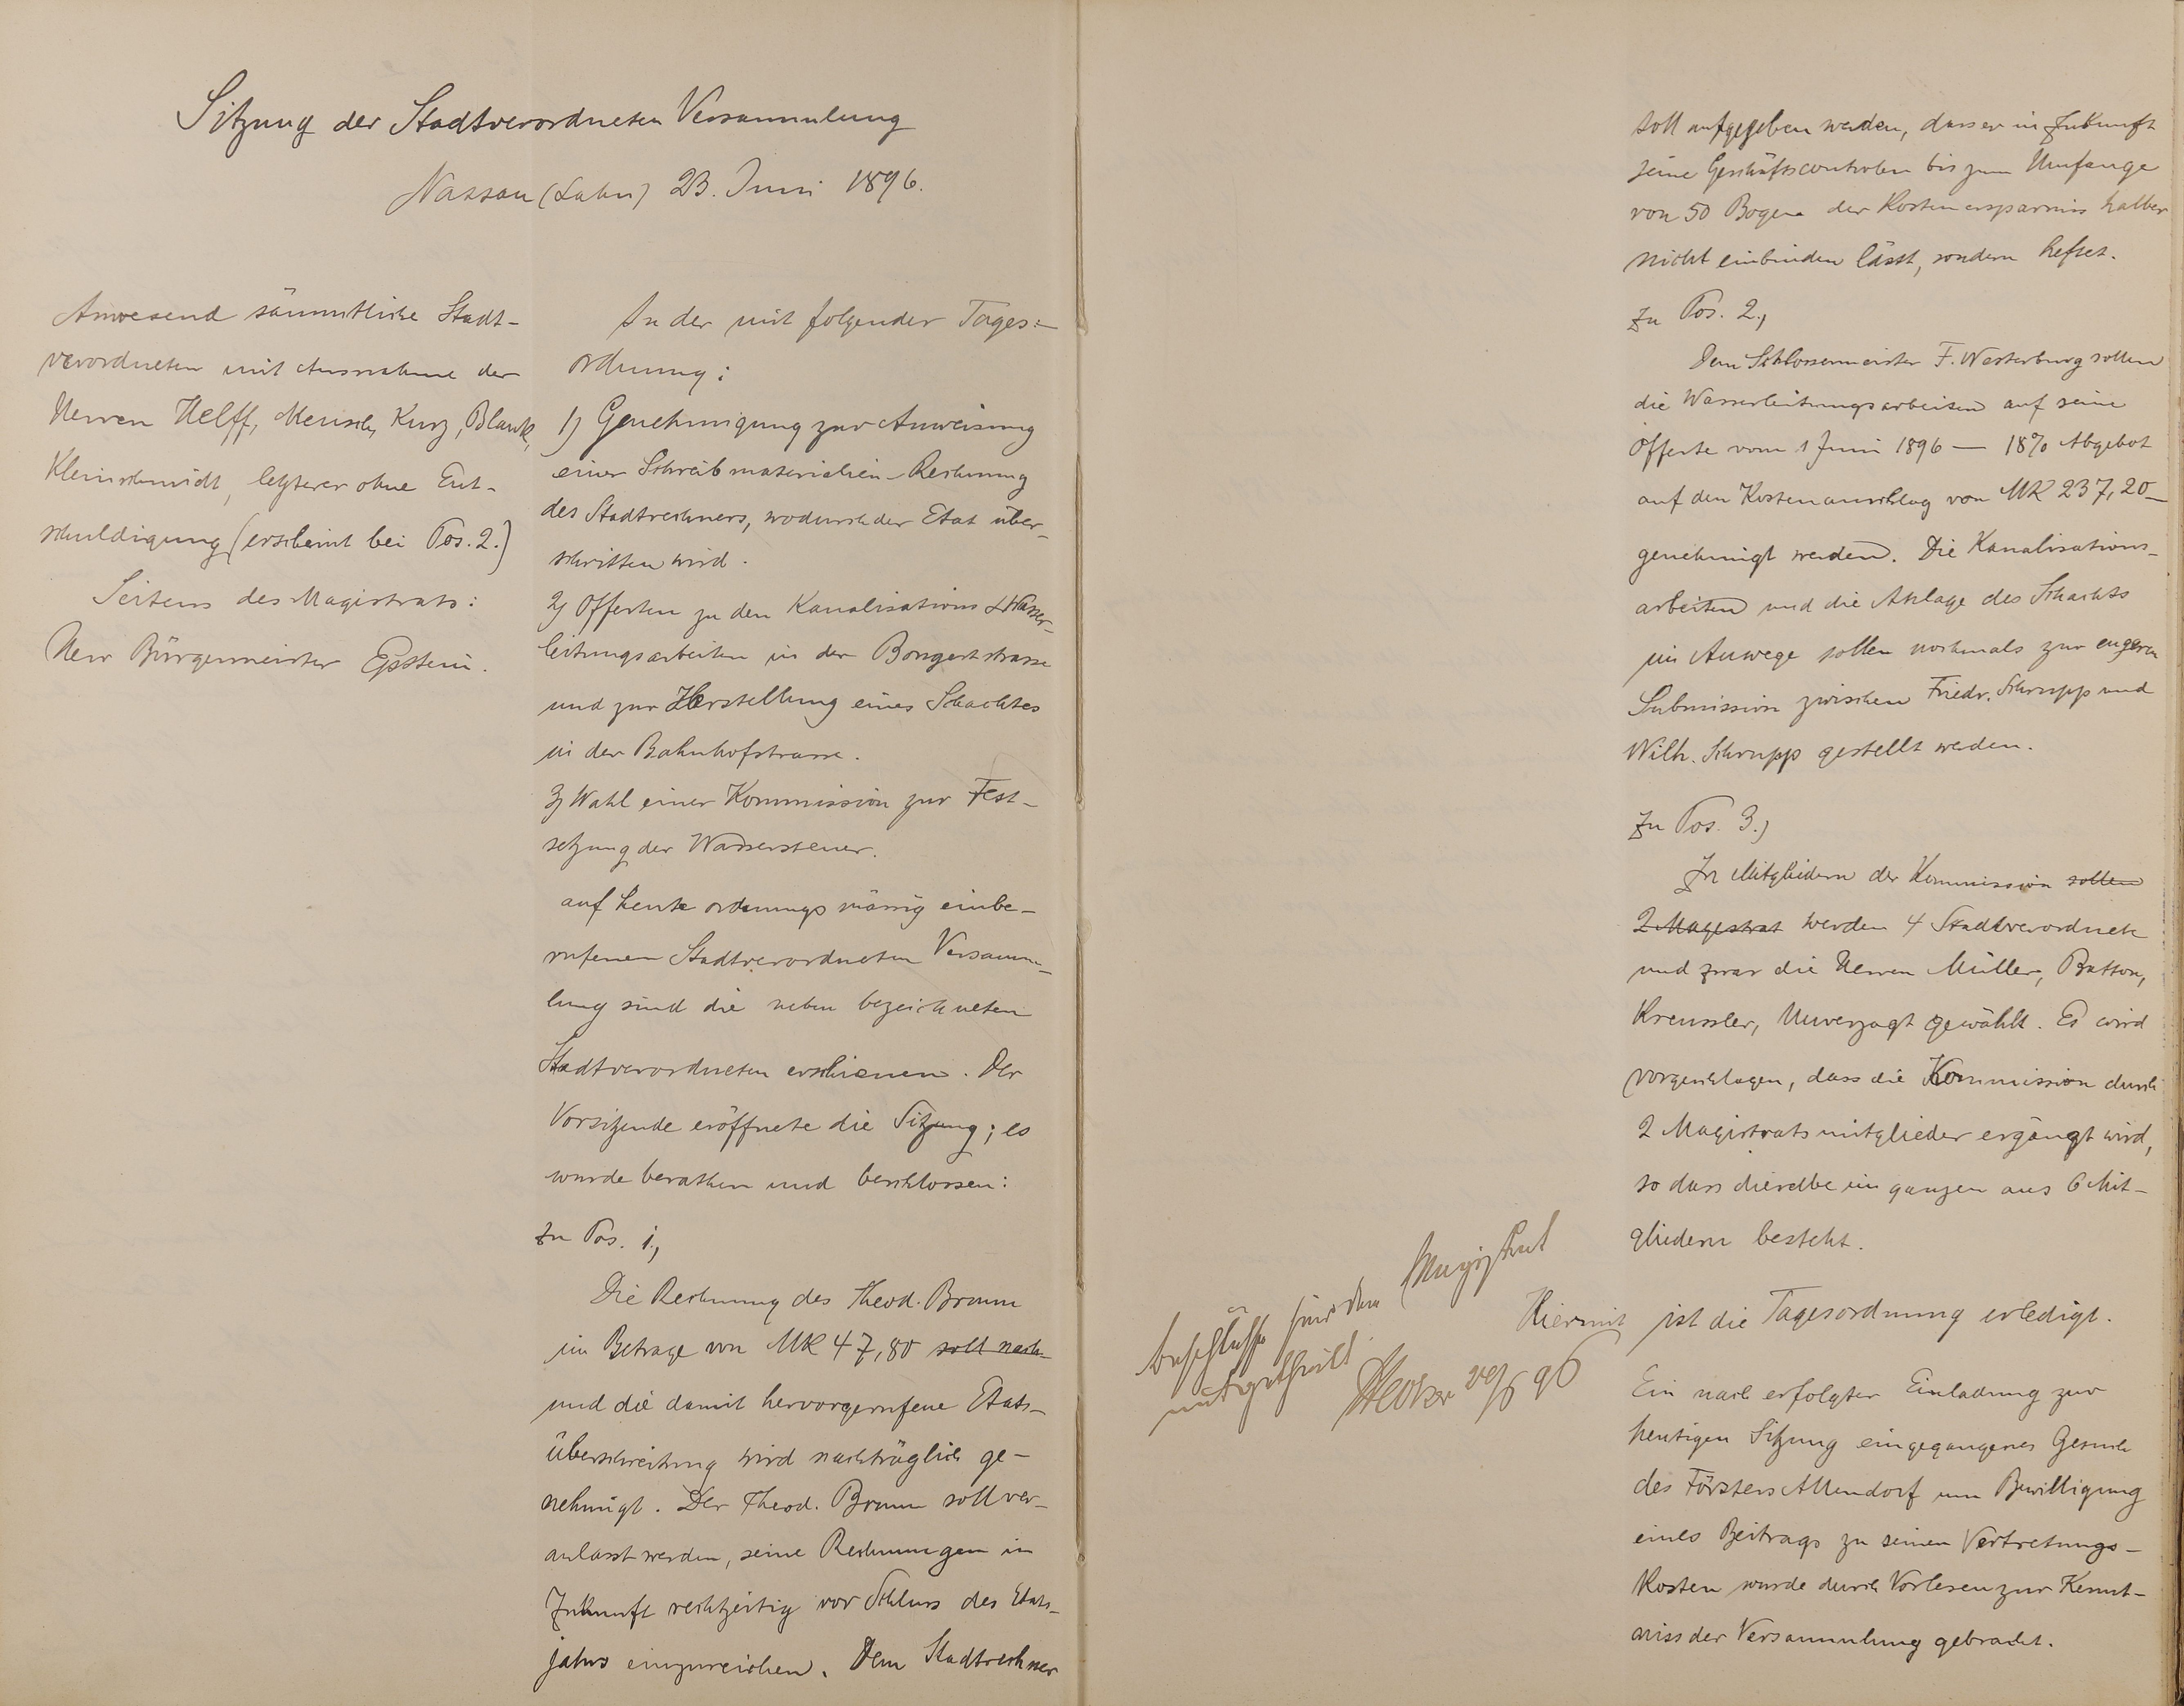 Sitzung der Stadtverordneten Versammlung
Nassau (Lahn) 23. Juni 1896.
Anwesend sämmtliche Stadt-
verordneten mit Ausnahme der
Herren Helff, Mensch, Kurz, Blank,
Kleinschmidt, letzterer ohne Ent-
schuldigung (erscheint bei Pos. 2.)
Seitens des Magistrats:
Herr Bürgermeister Epstein.
In der mit folgender Tages-
ordnung:
1) Genehmigung zur Anweisung
einer Schreibmaterialien-Rechnung
des Stadtrechners, wodurch der Etat über-
schritten wird.
2) Offerten zu den Kanalisations & Wasser-
leitungsarbeiten in der Bongertstrasse
und zur Herstellung eines Schachtes
in der Bahnhofstrasse.
3) Wahl einer Kommission zur Fest-
setzung der Wassersteuer.
auf heute ordnungsmässig einbe-
rufenen Stadtverordneten Versamm-
lung sind die neben bezeichneten
Stadtverordneten erschienen. Der
Vorsitzende eröffnete die Sitzung; es
wurde berathen und beschlossen:
Zu Pos. 1.,
Die Rechnung des Theod. Bromm
im Betrage von MK 47,80 soll nach-
und die damit hervorgerufene Etats-
überschreitung wird nachträglich ge-
nehmigt. Der Theod. Bromm soll ver-
anlasst werden, seine Rechnungen in
Zukunft rechtzeitig vor Schluss des Etats-
jahrs einzureichen. Dem Stadtrechner
soll aufgegeben werden, dass er in Zukunft
seine Geschäftscontrolen bis zum Umfange
von 50 Bogen der Kostenersparniss halber
nicht einbinden lässt, sondern heftet.
Zu Pos. 2.,
Dem Schlossermeister F. Westerburg sollen
die Wasserleitungsarbeiten auf seine
Offerte vom 1 Juni 1896 — 18% Abgebot
auf den Kostenanschlag von MK 237,20 —
genehmigt werden. Die Kanalisations-
arbeiten und die Anlage des Schachts
im Auwege sollen nochmals zur engern
Submission zwischen Friedr. Schrupp und
Wilh. Schrupp gestellt werden.
Zu Pos. 3.)
Zu Mitgliedern der Kommission sollen
2 Magistrat werden 4 Stadtverordnete
und zwar die Herren Müller, Batton,
Kreussler, Unverzagt gewählt. Es wird
vorgeschlagen, dass die Kommission durch
2 Magistratsmitglieder ergänzt wird,
so dass dieselbe im ganzen aus 6 Mit-
gliedern besteht.
Hiermit ist die Tagesordnung erledigt.
Beschlüsse sind dem Magistrat
mitgetheilt
29/6 96
Ein nach erfolgter Einladung zur
heutigen Sitzung eingegangenes Gesuch
des Försters Allendorf um Bewilligung
eines Beitrags zu seinen Vertretungs-
kosten wurde durch Vorlesen zur Kennt-
niss der Versammlung gebracht.